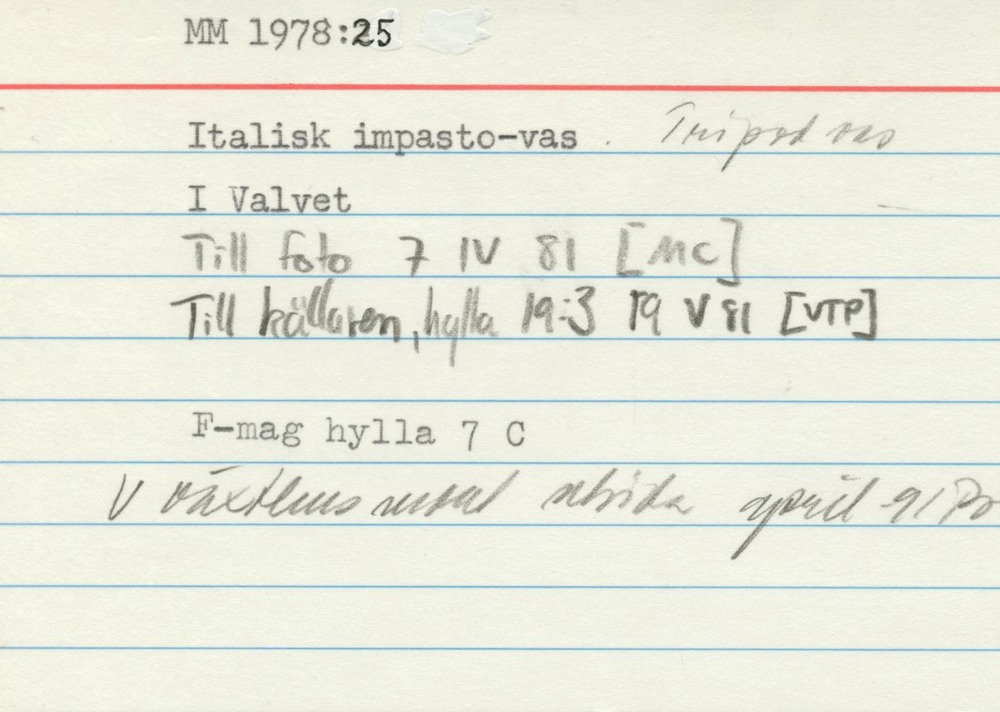 MM 1978:25
Italisk impasto-vas . Tripod vas
I Valvet
Till foto 7 IV 81 [MC]
Till källaren, hylla 19:3 19 V 81 [VTP]
F-mag hylla 7 C
V april 91